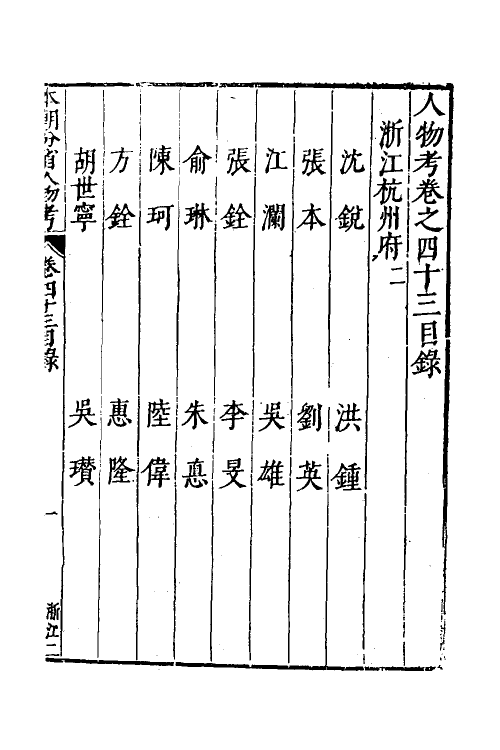 人物考卷之四十三目錄
浙江杭州府二
沈銳 洪鍾
張本 劉英
江瀾 吳雄
張銓 李旻
俞琳 朱惪
陳珂 陸偉
方銓 惠隆
胡世寧 吳瓚
本朝分省人物考 卷四十三目錄 一 浙江二